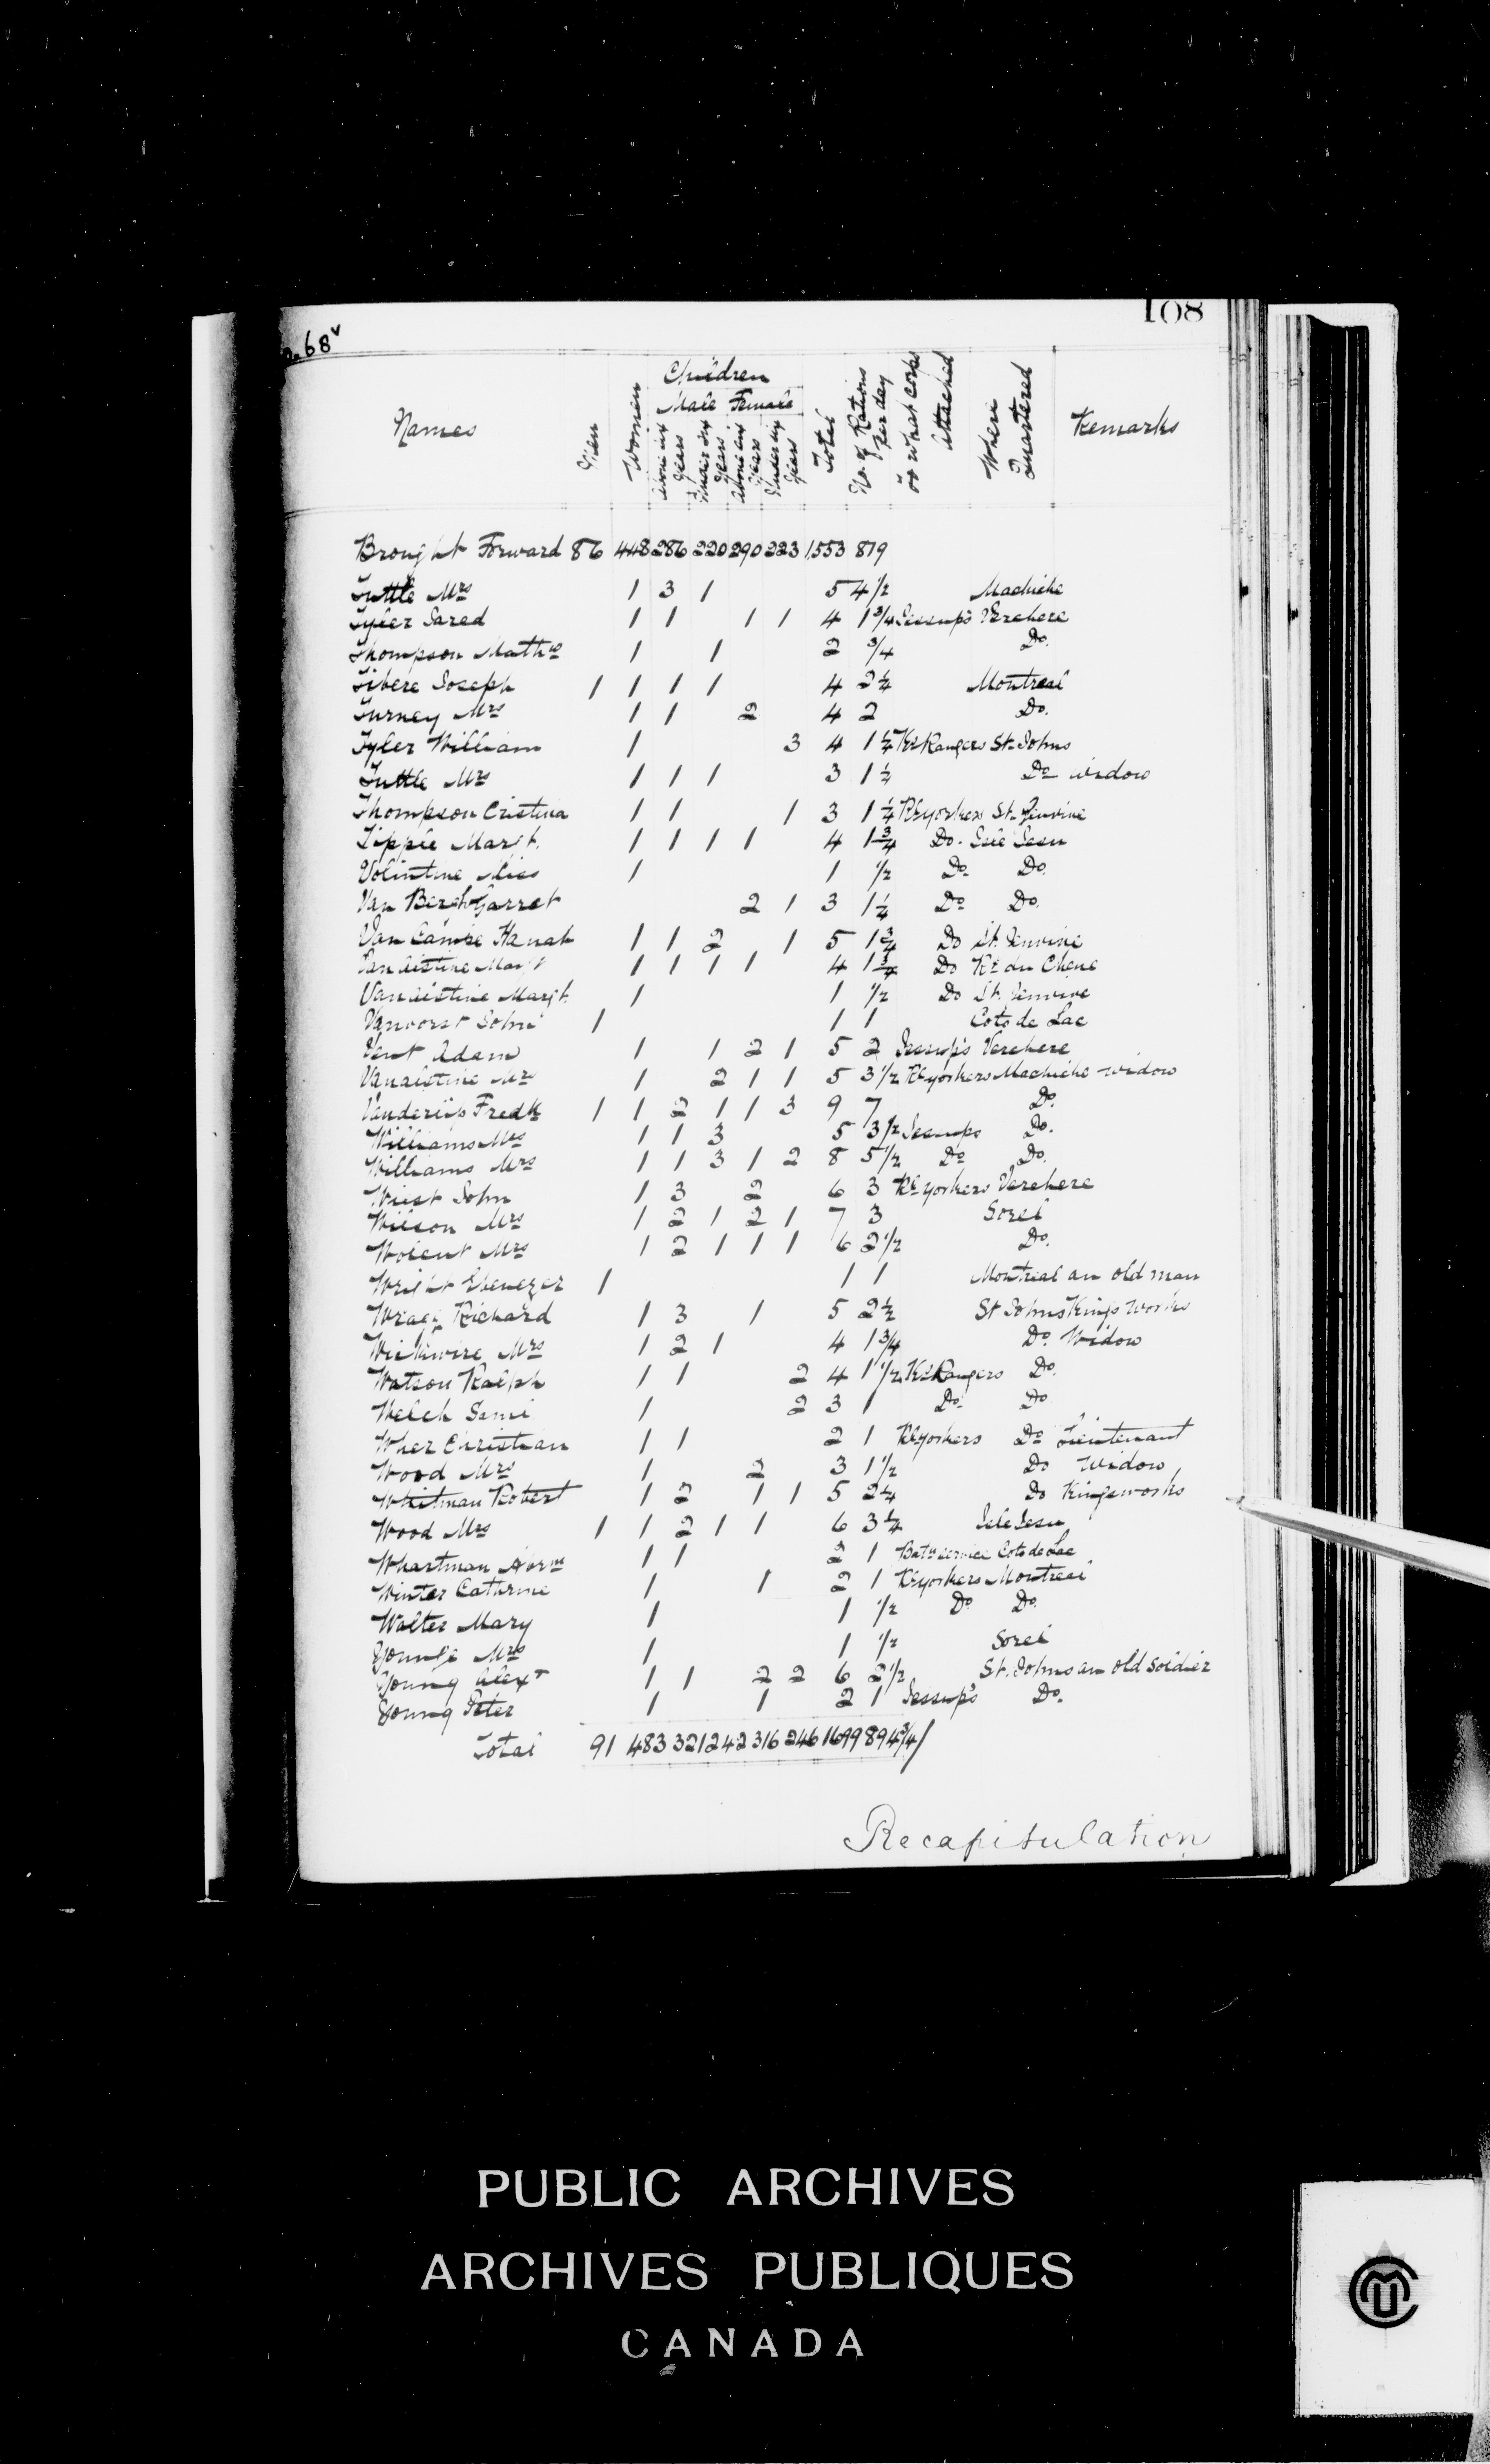 108
p. 68v
Names Men Women Children Male Female Above six Years Under six Years Above six Years Under six Years Total No. of Rations per day To what Corps attached Where Quartered Remarks
Brought Forward 86 448 286 220 290 223 1553 879
Tuttle Mrs 1 3 1 5 4 1/2 Machiche
Tyler Jared 1 1 1 1 4 1 3/4 Jessup's Verchere
Thompson Mathw 1 1 2 3/4 Do.
Tibere Joseph 1 1 1 1 4 2 1/4 Montreal
Turney Mrs 1 1 2 4 2 Do.
Tyler William 1 3 4 1 1/4 Ks Rangers St. Johns
Tuttle Mrs 1 1 1 3 1 1/4 Do widow
Thompson Cristina 1 1 1 3 1 1/4 Rl yorkers St.
Tipple Margt. 1 1 1 1 4 1 3/4 Do. Isle Jesu
Volintine Miss 1 1 1/2 Do Do.
Van Bergh Garret 2 1 3 1 1/4 Do Do.
Van Campe Hanah 1 1 2 1 5 1 3/4 Do St.
Vanalstine Margt 1 1 1 1 4 1 3/4 Do Rr du Chene
Vanalstine Margt. 1 1 1/2 Do St.
Vanvorst John 1 1 1 Coto de Lac
Vent Adam 1 1 2 1 5 2 Jessup's Verchere
Vanalstine Mrs 1 2 1 1 5 3 1/2 Rl yorkers Machiche widow
Vanderlip Fredk 1 1 2 1 1 3 9 7 Do.
Williams Mrs 1 1 3 5 3 1/2 Jessups Do.
Williams Mrs 1 1 3 1 2 8 5 1/2 Do Do.
John 1 3 2 6 3 Rl yorkers Verchere
Wilson Mrs 1 2 1 2 1 7 3 Sorel
Mrs 1 2 1 1 1 6 2 1/2 Do.
Wright Ebenezer 1 1 1 Montreal an old man
Wragg Richard 1 3 1 5 2 1/2 St Johns Kings works
Wickwire Mrs 1 2 1 4 1 3/4 Do. Widow
Watson Ralph 1 1 2 4 1 1/2 Ks Rangers Do.
Welch Saml 1 2 3 1 Do. Do
Wher Christian 1 1 2 1 Rl yorkers Do Lieutenant
Wood Mrs 1 2 3 1 1/2 Do widow
Whitman Robert 1 2 1 1 5 2 1/4 Do Kingsworks
Wood Mrs 1 1 2 1 1 6 3 1/4 Isle Jesu
Whartman 1 1 2 1 Coto de Lac
Winter Cathrine 1 1 2 1 Rl yorkers Montreal
Walter Mary 1 1 1/2 Do Do.
Mrs 1 1 1/2 Sorel
Young Alexr 1 1 2 2 6 2 1/2 St. Johns an old soldier
Young Peter 1 1 2 1 Jessup's Do.
Total 91 483 321 242 316 246 1699 894 3/4
Recapitulation
PUBLIC ARCHIVES
ARCHIVES PUBLIQUES
CANADA